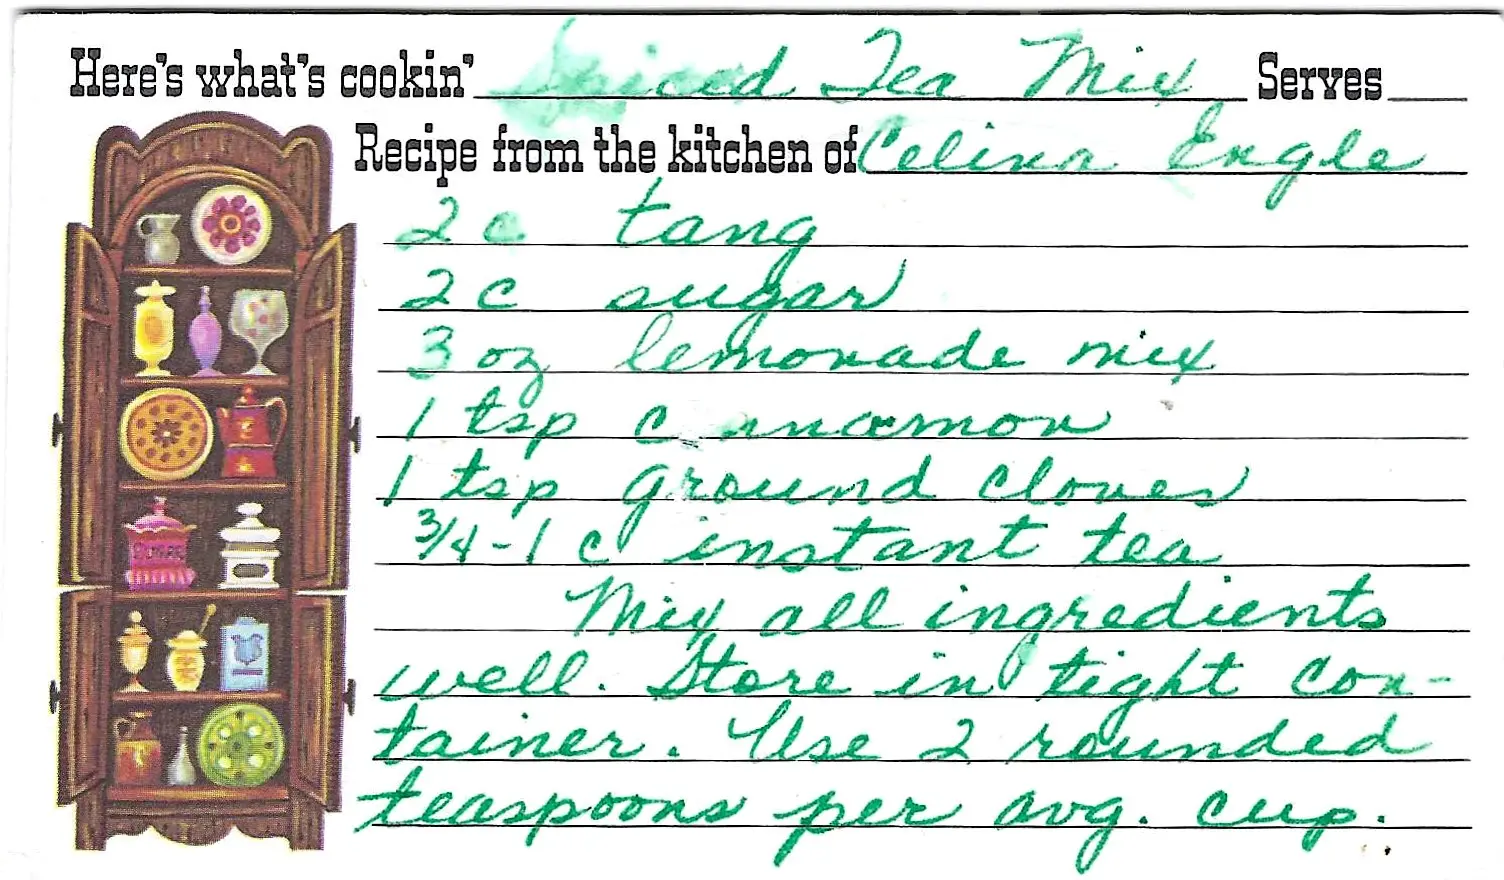 Here's what's cookin' Spiced Tea Mix Serves
Recipe from the kitchen of Celina Engle
2 c tang
2 c sugar
3 oz lemonade mix
1 tsp cinnamon
1 tsp ground cloves
3/4-1 c instant tea
Mix all ingredients
well. Store in tight con-
tainer. Use 2 rounded
teaspoons per avg. cup.